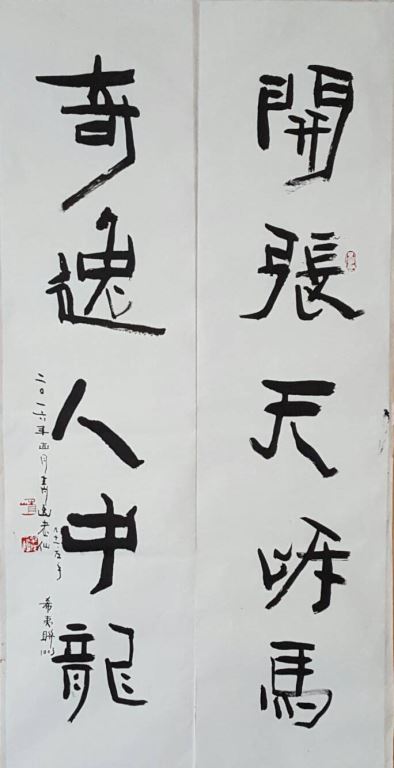 開張天岸馬
奇逸人中龍
二〇一六年四月
希夷聯